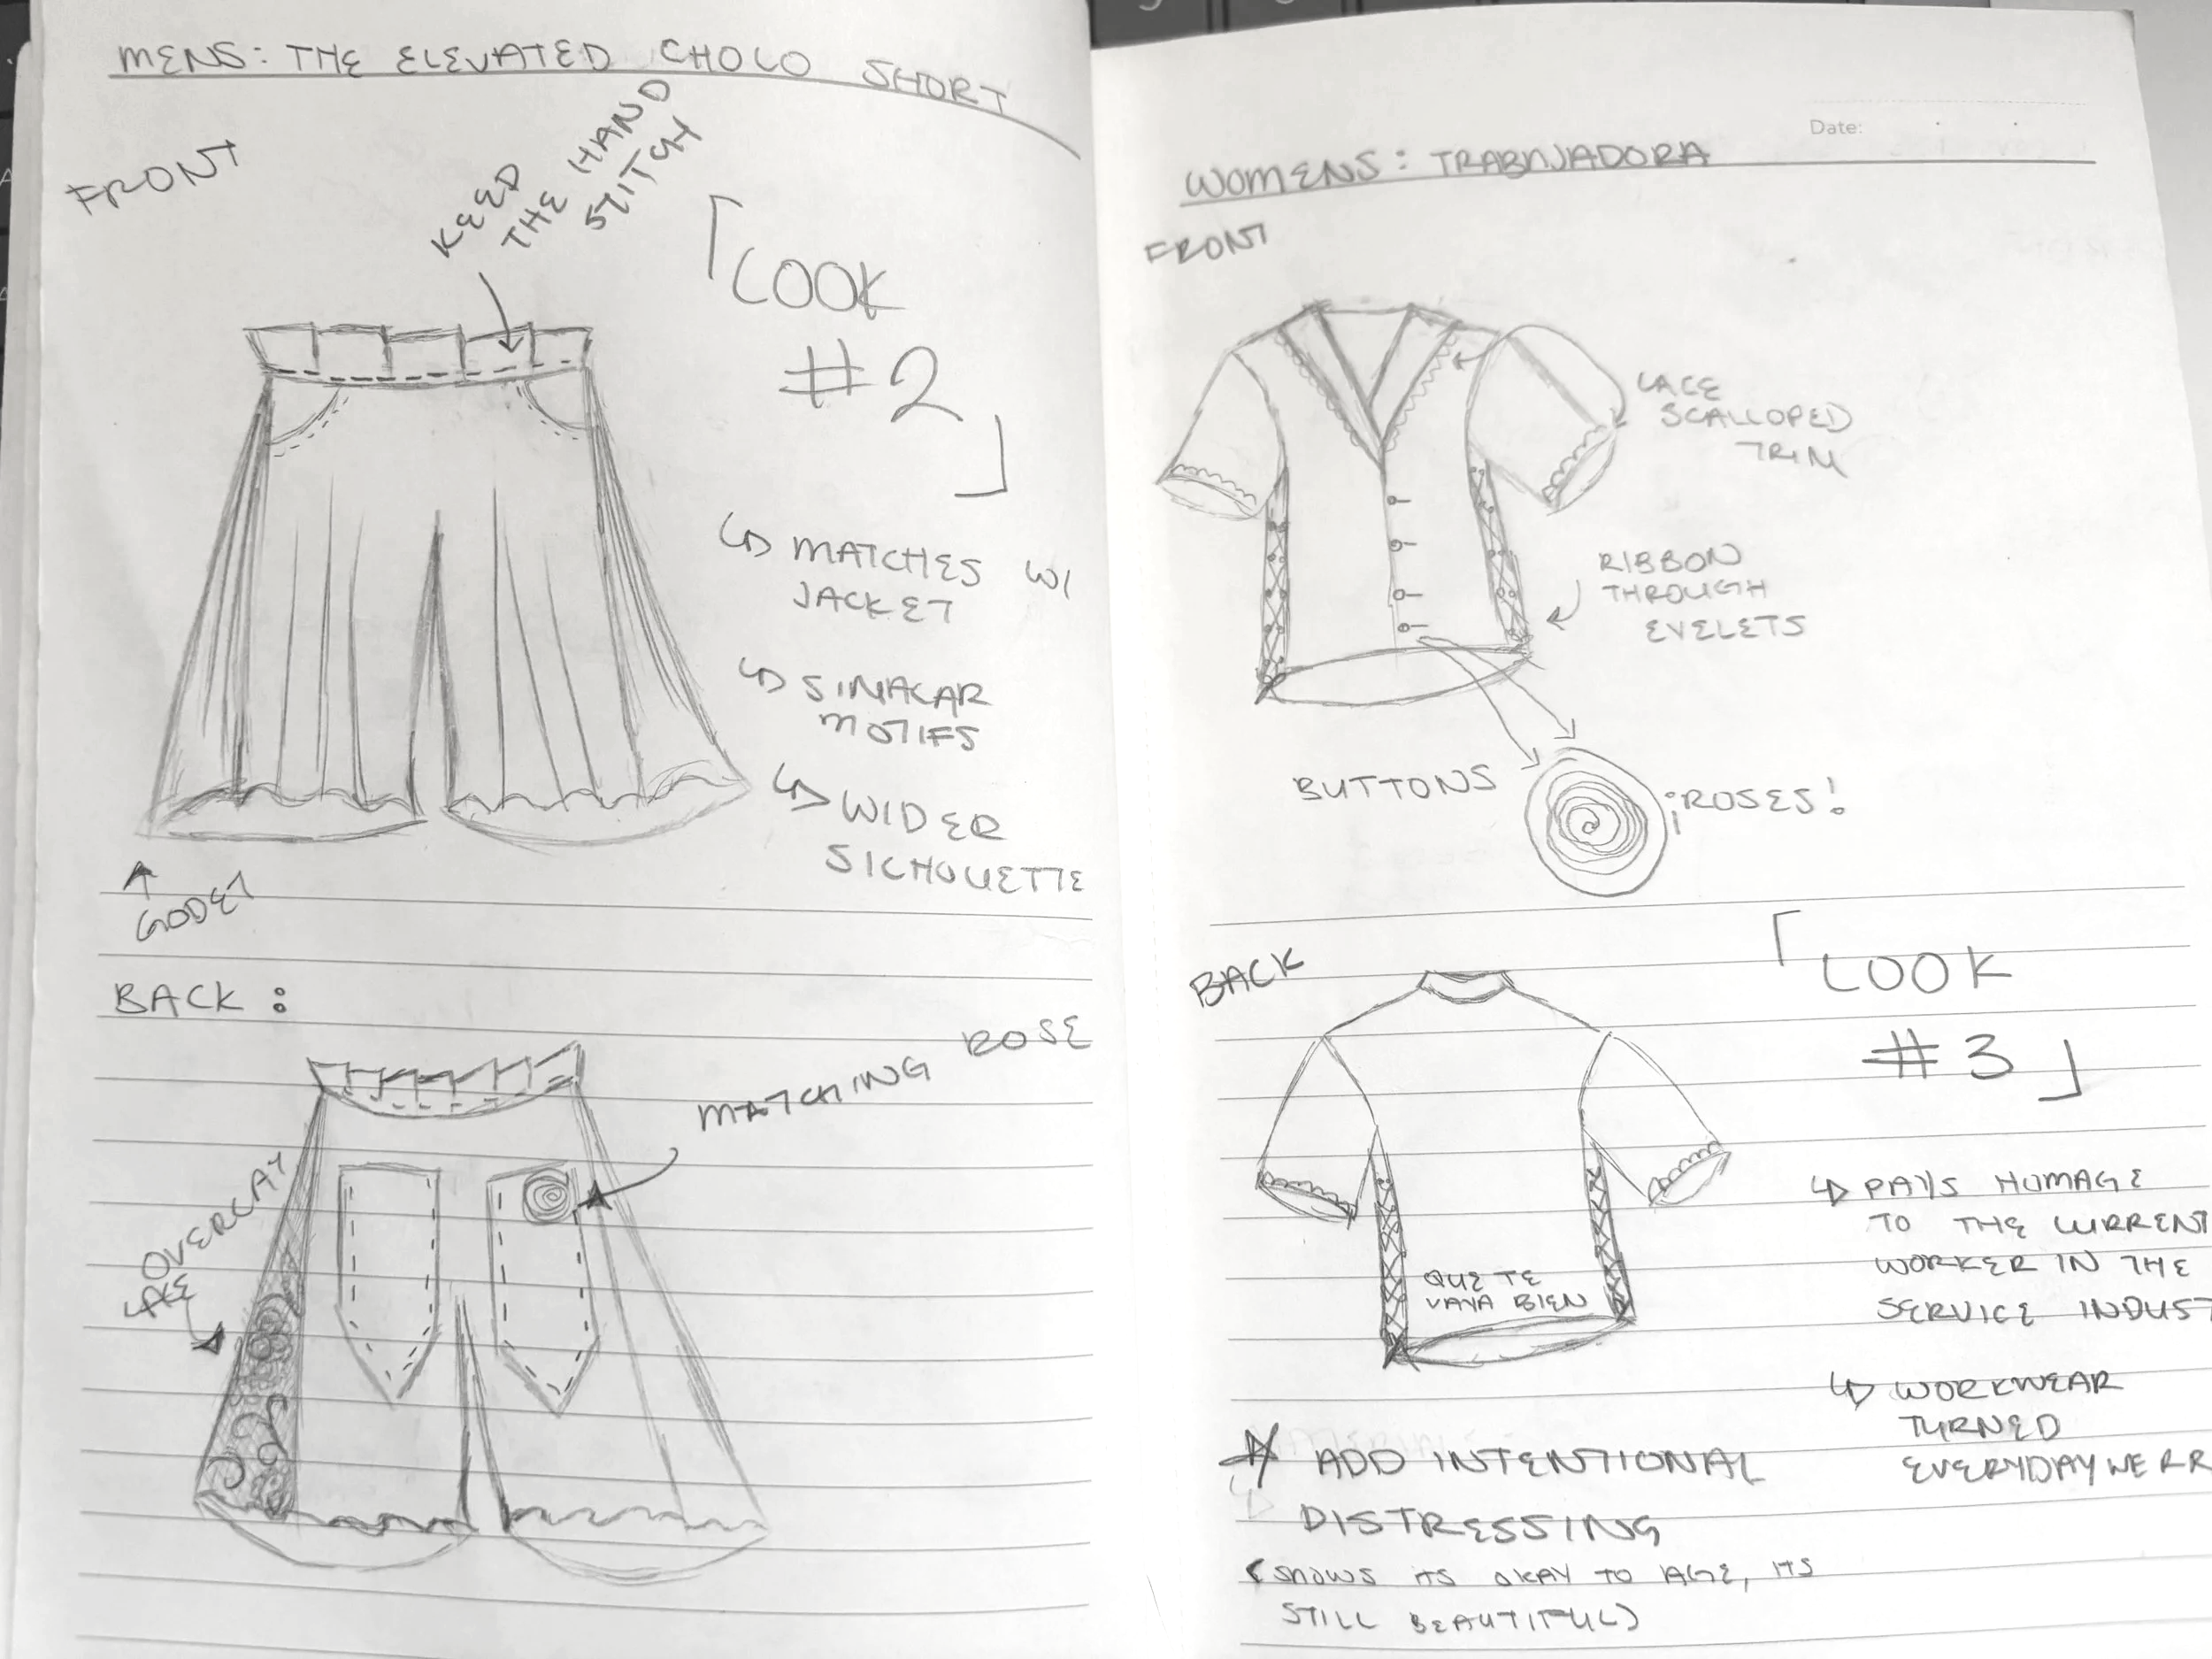 MENS: THE ELEVATED CHOLO SHORT
FRONT
KEEP
THE HAND
STITCH
「LOOK
#2」
↳ MATCHES W/
JACKET
↳ SIMALAR
MOTIFS
↳ WIDER
SILHOUETTE
GODET
BACK:
MATCHING ROSE
LACE
OVERLAY
Date:
WOMENS: TRABAJADORA
FRONT
LACE
SCALLOPED
TRIM
RIBBON
THROUGH
EYELETS
BUTTONS
¡ROSES!
BACK
「LOOK
#3」
QUE TE
VAYA BIEN
↳ PAYS HOMAGE
TO THE CURRENT
WORKER IN THE
SERVICE INDUST
↳ WORKWEAR
TURNED
EVERYDAYWERR
* ADD INTENTIONAL
DISTRESSING
(SHOWS ITS OKAY TO AGE, ITS
STILL BEAUTIFUL)